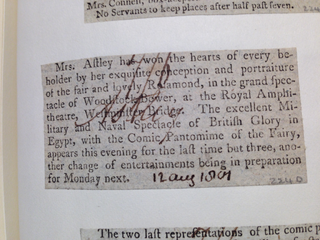 Mrs. Connell,
No Servants to keep places after half past seven.
Mrs. Astley has won the hearts of every be-
holder by her exquisite conception and portraiture
of the fair and lovely Rosamond, in the grand spec-
tacle of Woodstock Bower, at the Royal Amphi-
theatre, Westminster Bridge. The excellent Mi-
litary and Naval Spectacle of British Glory in
Egypt, with the Comic Pantomime of the Fairy,
appears this evening for the last time but three, ano-
ther change of entertainments being in preparation
for Monday next. 12 aug 1801
The two last representations of the comic p